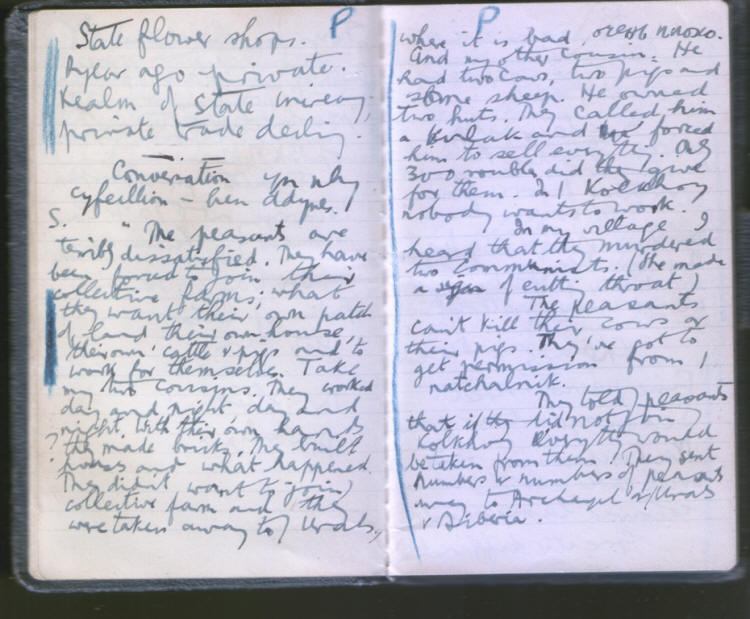 P
State flower shops.
A year ago private.
Realm of State increasing,
private trade declining.
Conversation yn nhy
cyfeillion – hen ddynes.
S. "The peasants are
terribly dissatisfied. They have
been forced to join their
collective farms; what
they want their own patch
of land, their own house,
their own cattle & pigs and to
work for themselves. Take
my two cousins. They worked
day and night, day and
night. With their own hands
? they made bricks. They built
houses and what happened.
They didn't want to join
collective farm and they
were taken away to Urals,
P
where it is bad, очень плохо.
And my other cousin. He
had two cows, two pigs and
some sheep. He owned
two huts. They called him
a Kulak and forced
him to sell everything. Only
300 roubles did they give
for them. In Kolkhoz
nobody wants to work.
In my village I
heard that they murdered
two Communists. (She made
a sign of cutting throat)
The Peasants
can't kill their cows or
their pigs. They've got to
get permission from
natchalnik.
They told peasants
that if they did not join
Kolkhoz everything would
be taken from them. They sent
numbers & numbers of peasants
away to Archangel & Urals
& Siberia.